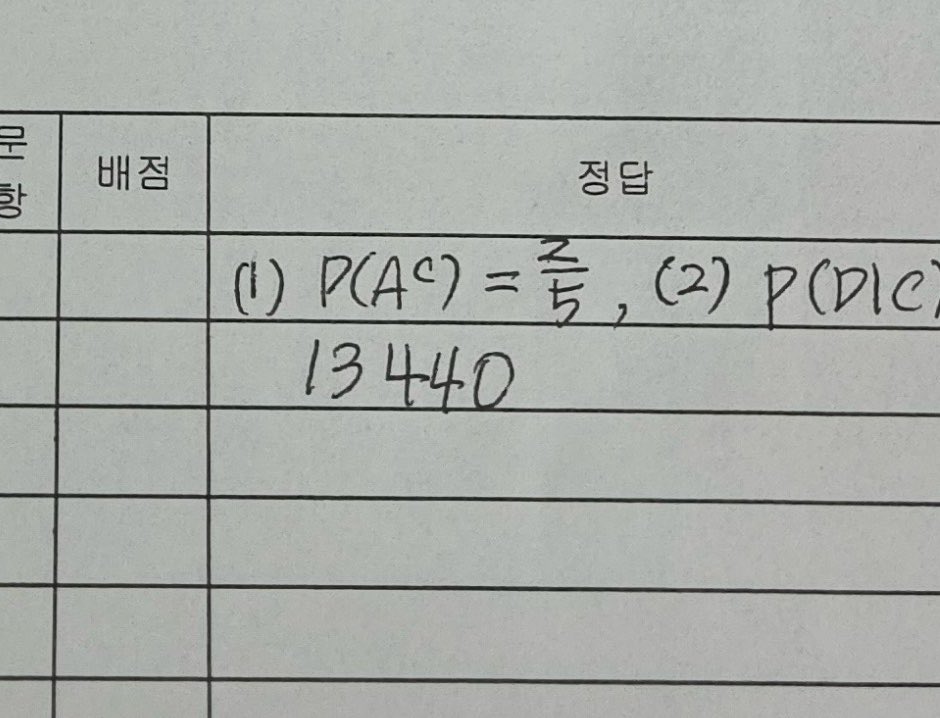 문항 배점 정답
(1) P(A^C) = 2/5, (2) P(D|C)
13440